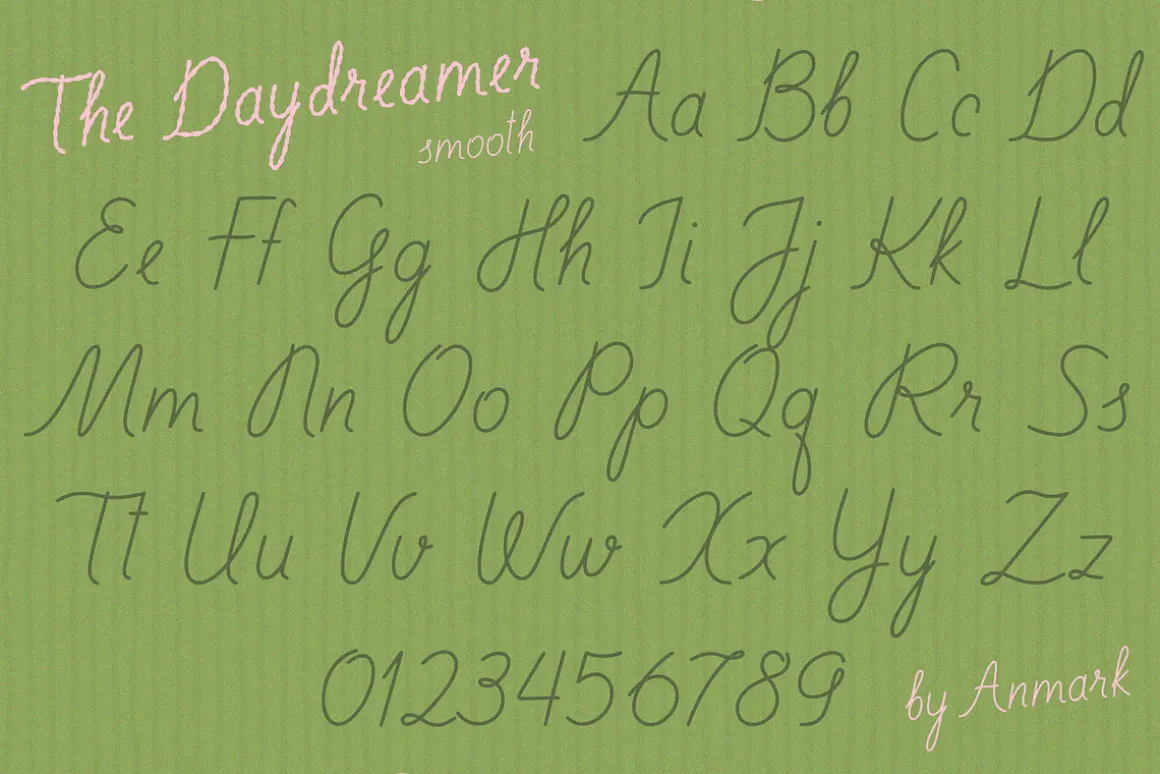 The Daydreamer
smooth
Aa Bb Cc Dd
Ee Ff Gg Hh Ii Jj Kk Ll
Mm Nn Oo Pp Qq Rr Ss
Tt Uu Vv Ww Xx Yy Zz
0123456789
by Anmark